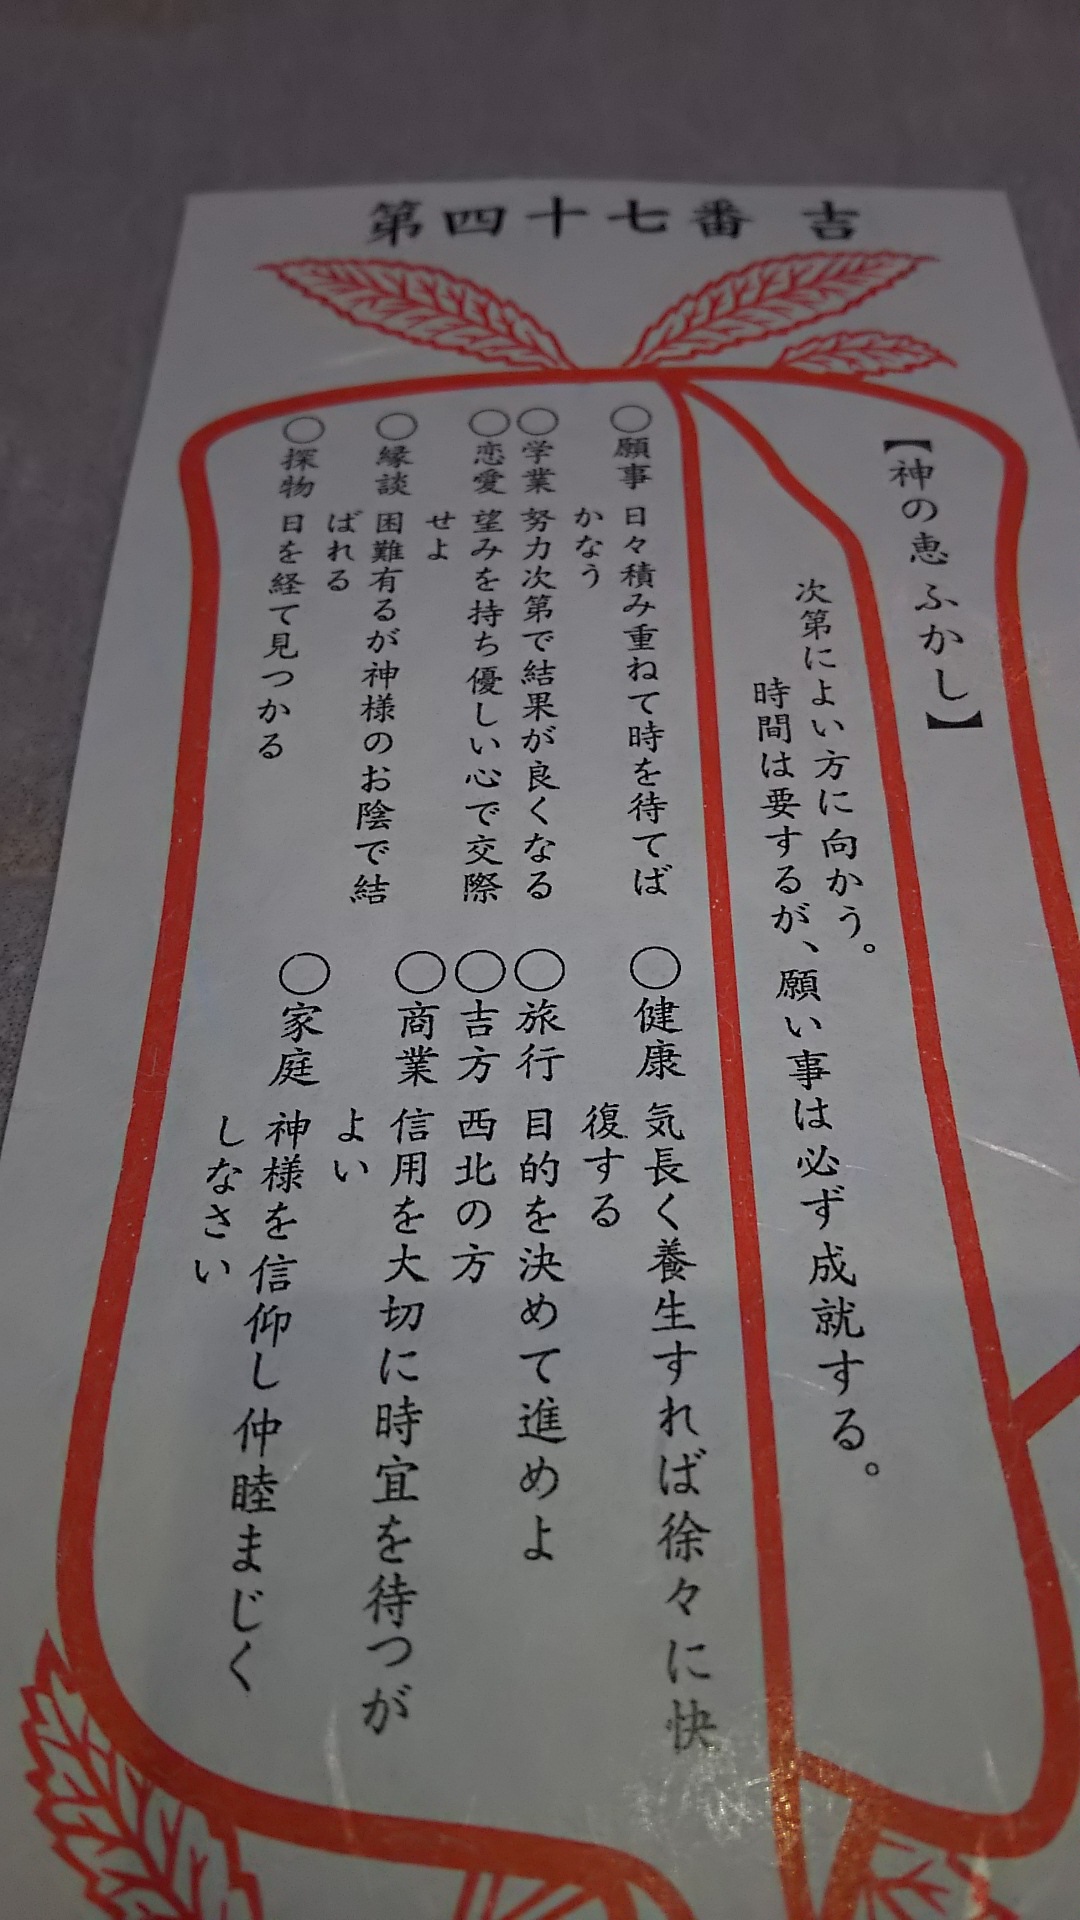 第四十七番 吉
【神の恵ふかし】
次第によい方に向かう。
時間は要するが、願い事は必ず成就する。
○願事 日々積み重ねて時を待てば
かなう
○学業 努力次第で結果が良くなる
○恋愛 望みを持ち優しい心で交際
せよ
○縁談 困難有るが神様のお陰で結
ばれる
○探物 日を経て見つかる
○健康 気長く養生すれば徐々に快
復する
○旅行 目的を決めて進めよ
○吉方 西北の方
○商業 信用を大切に時宜を待つが
よい
○家庭 神様を信仰し仲睦まじく
しなさい